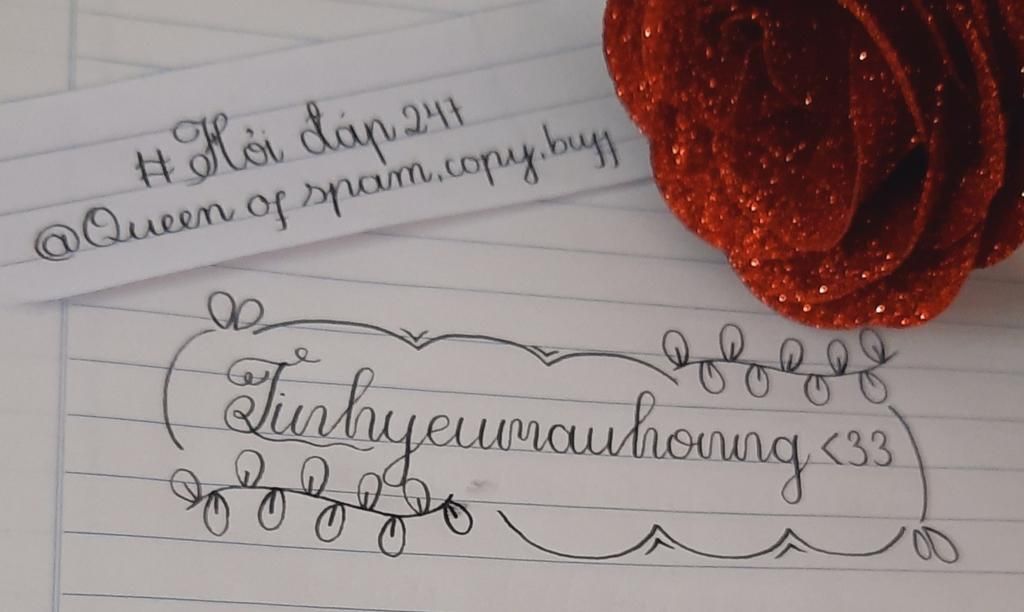 # Hỏi đáp 247
@Queen of spam.copy.buff
Tinhyeumauhoung <33